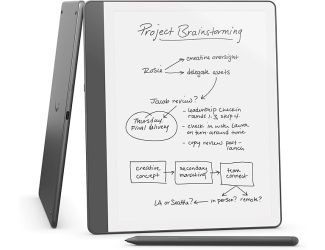 Project Brainstorming
Rosie
creative oversight
delegate assets
Jacob review?
Thursday
Final delivery
- leadership check in
rounds 1, 3, skip 4.
- check in with Laura
on turn around time
- copy review post-
launch
creative
concept
secondary
marketing
team
connect
LA or Seattle?
in person?
remote?